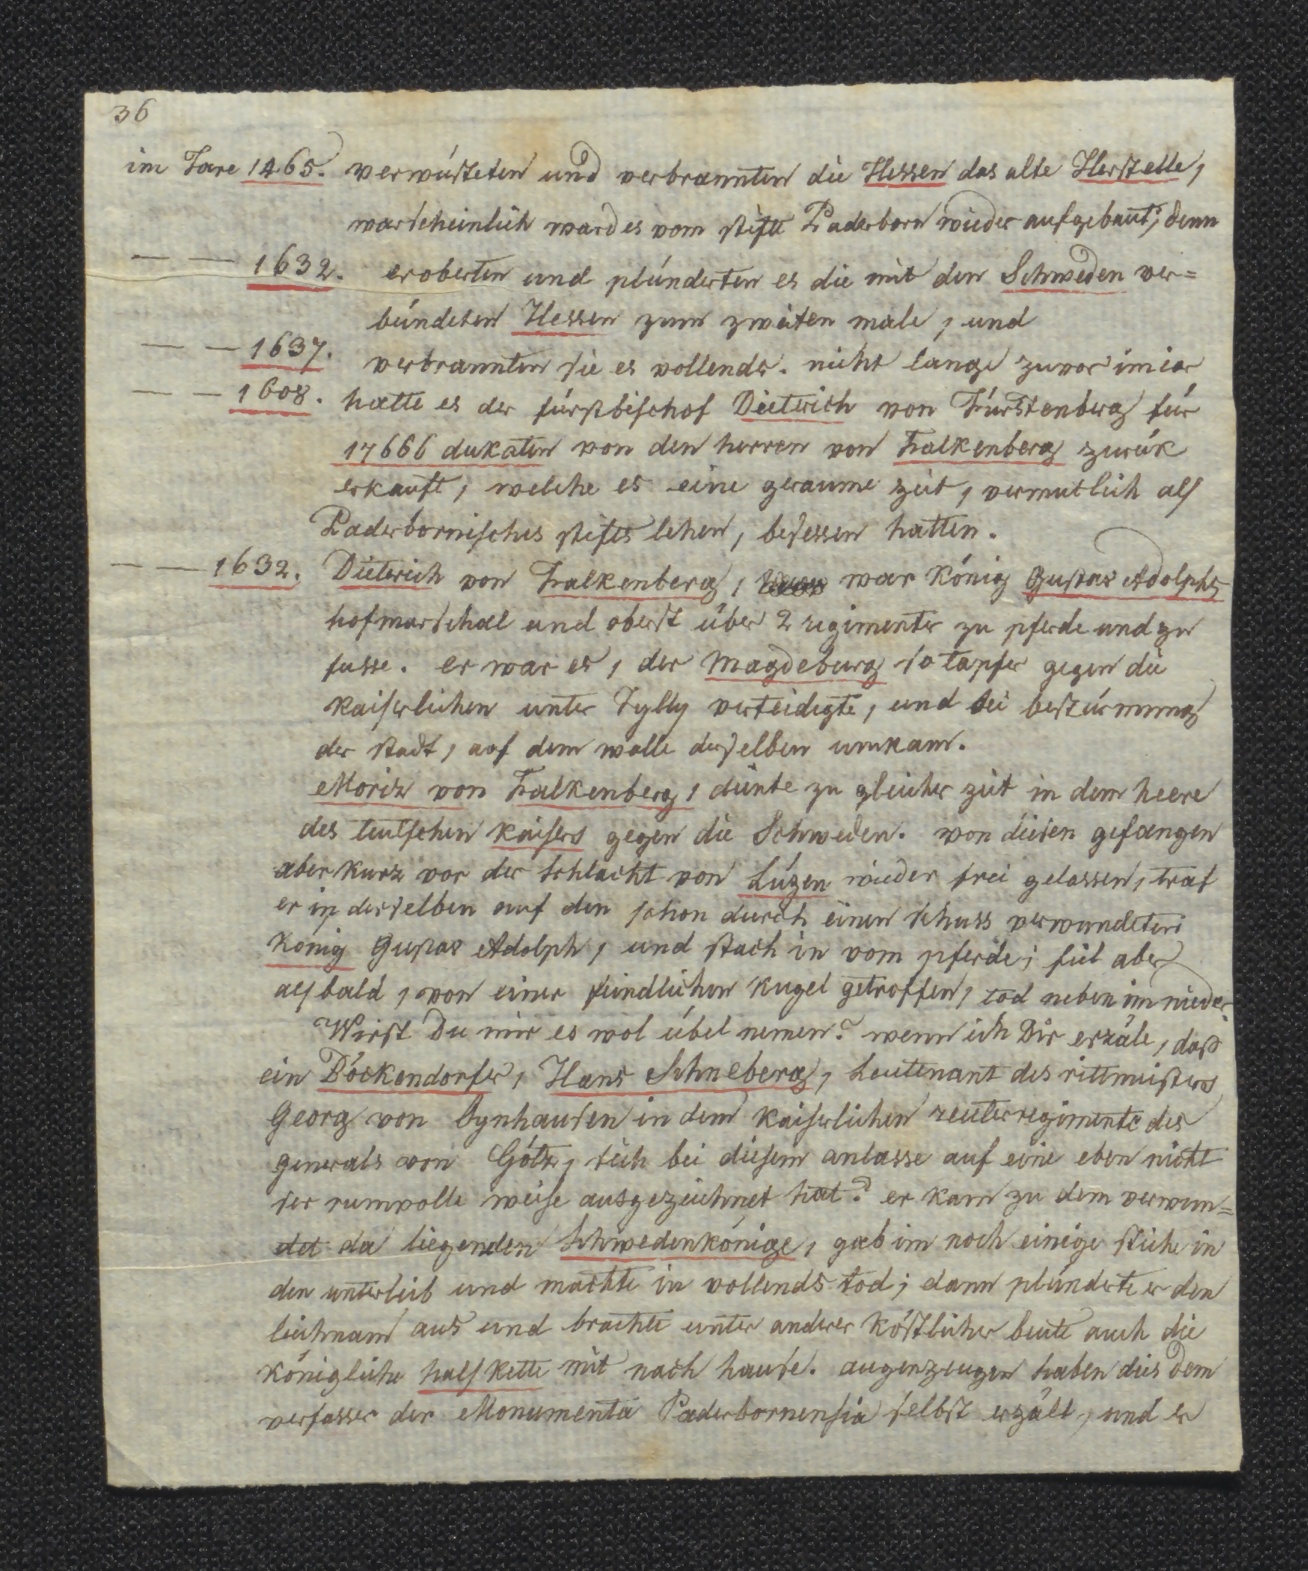 36
im Jare 1465. verwüsteten und verbrannten die Hessen das alte Herstelle,
warscheinlich ward es vom stifte Paderborn wieder aufgebaut; denn
— — 1632. eroberten und plünderten es die mit den Schweden ver=
bündeten Hessen zum zweiten male, und
— — 1637. verbrannten sie es vollends. nicht lange zuvor im iar
— — 1608. hatte es der fürstbischof Dieterich von Fürstenberg für
17666 dukaten von den herren von Falkenberg zurük
erkauft, welche es eine geraume zeit, vermutlich als
Paderbornisches stifts lehen, besessen hatten.
— — 1632. Dieterich von Falkenberg, war König Gustav Adolphs
hofmarschal und oberst über 2 regimenter zu pferde und zu
fusse. er war es, der Magdeburg so tapfer gegen die
kaiserlichen unter Tylly verteidigte, und bei bestürmung
der stadt, auf dem walle derselben umkam.
Moriz von Falkenberg, diente zu gleicher zeit in dem heere
des teutschen kaisers gegen die Schweden. von diesen gefangen
aber kurz vor der schlacht von Lüzen wieder frei gelassen, traf
er in derselben auf den schon durch einen schuss verwundeten
König Gustav Adolph, und stach in vom pferde; fiel aber
alsbald, von einer feindlichen kugel getroffen, tod neben im nieder.
Wirst Du mir es wol übel nemen? wenn ich Dir erzäle, daß
ein Böckendorfer, Hans Schneberg, Leutenant des rittmeisters
Georg von Oynhausen in dem kaiserlichen reuterregimente des
generals von Götz, sich bei diesem anlasse auf eine eben nicht
ser rumvolle weise ausgezeichnet hat? er kam zu dem verwun=
det da liegenden Schwedenkönige, gab im noch einige stiche in
den unterleib und machte in vollends tod; dann plünderte er den
leichnam aus und brachte unter anderer köstlicher beute auch die
königliche halskette mit nach hause. augenzeugen haben dies dem
verfasser der Monumenta Paderbornensia selbst erzält, und er